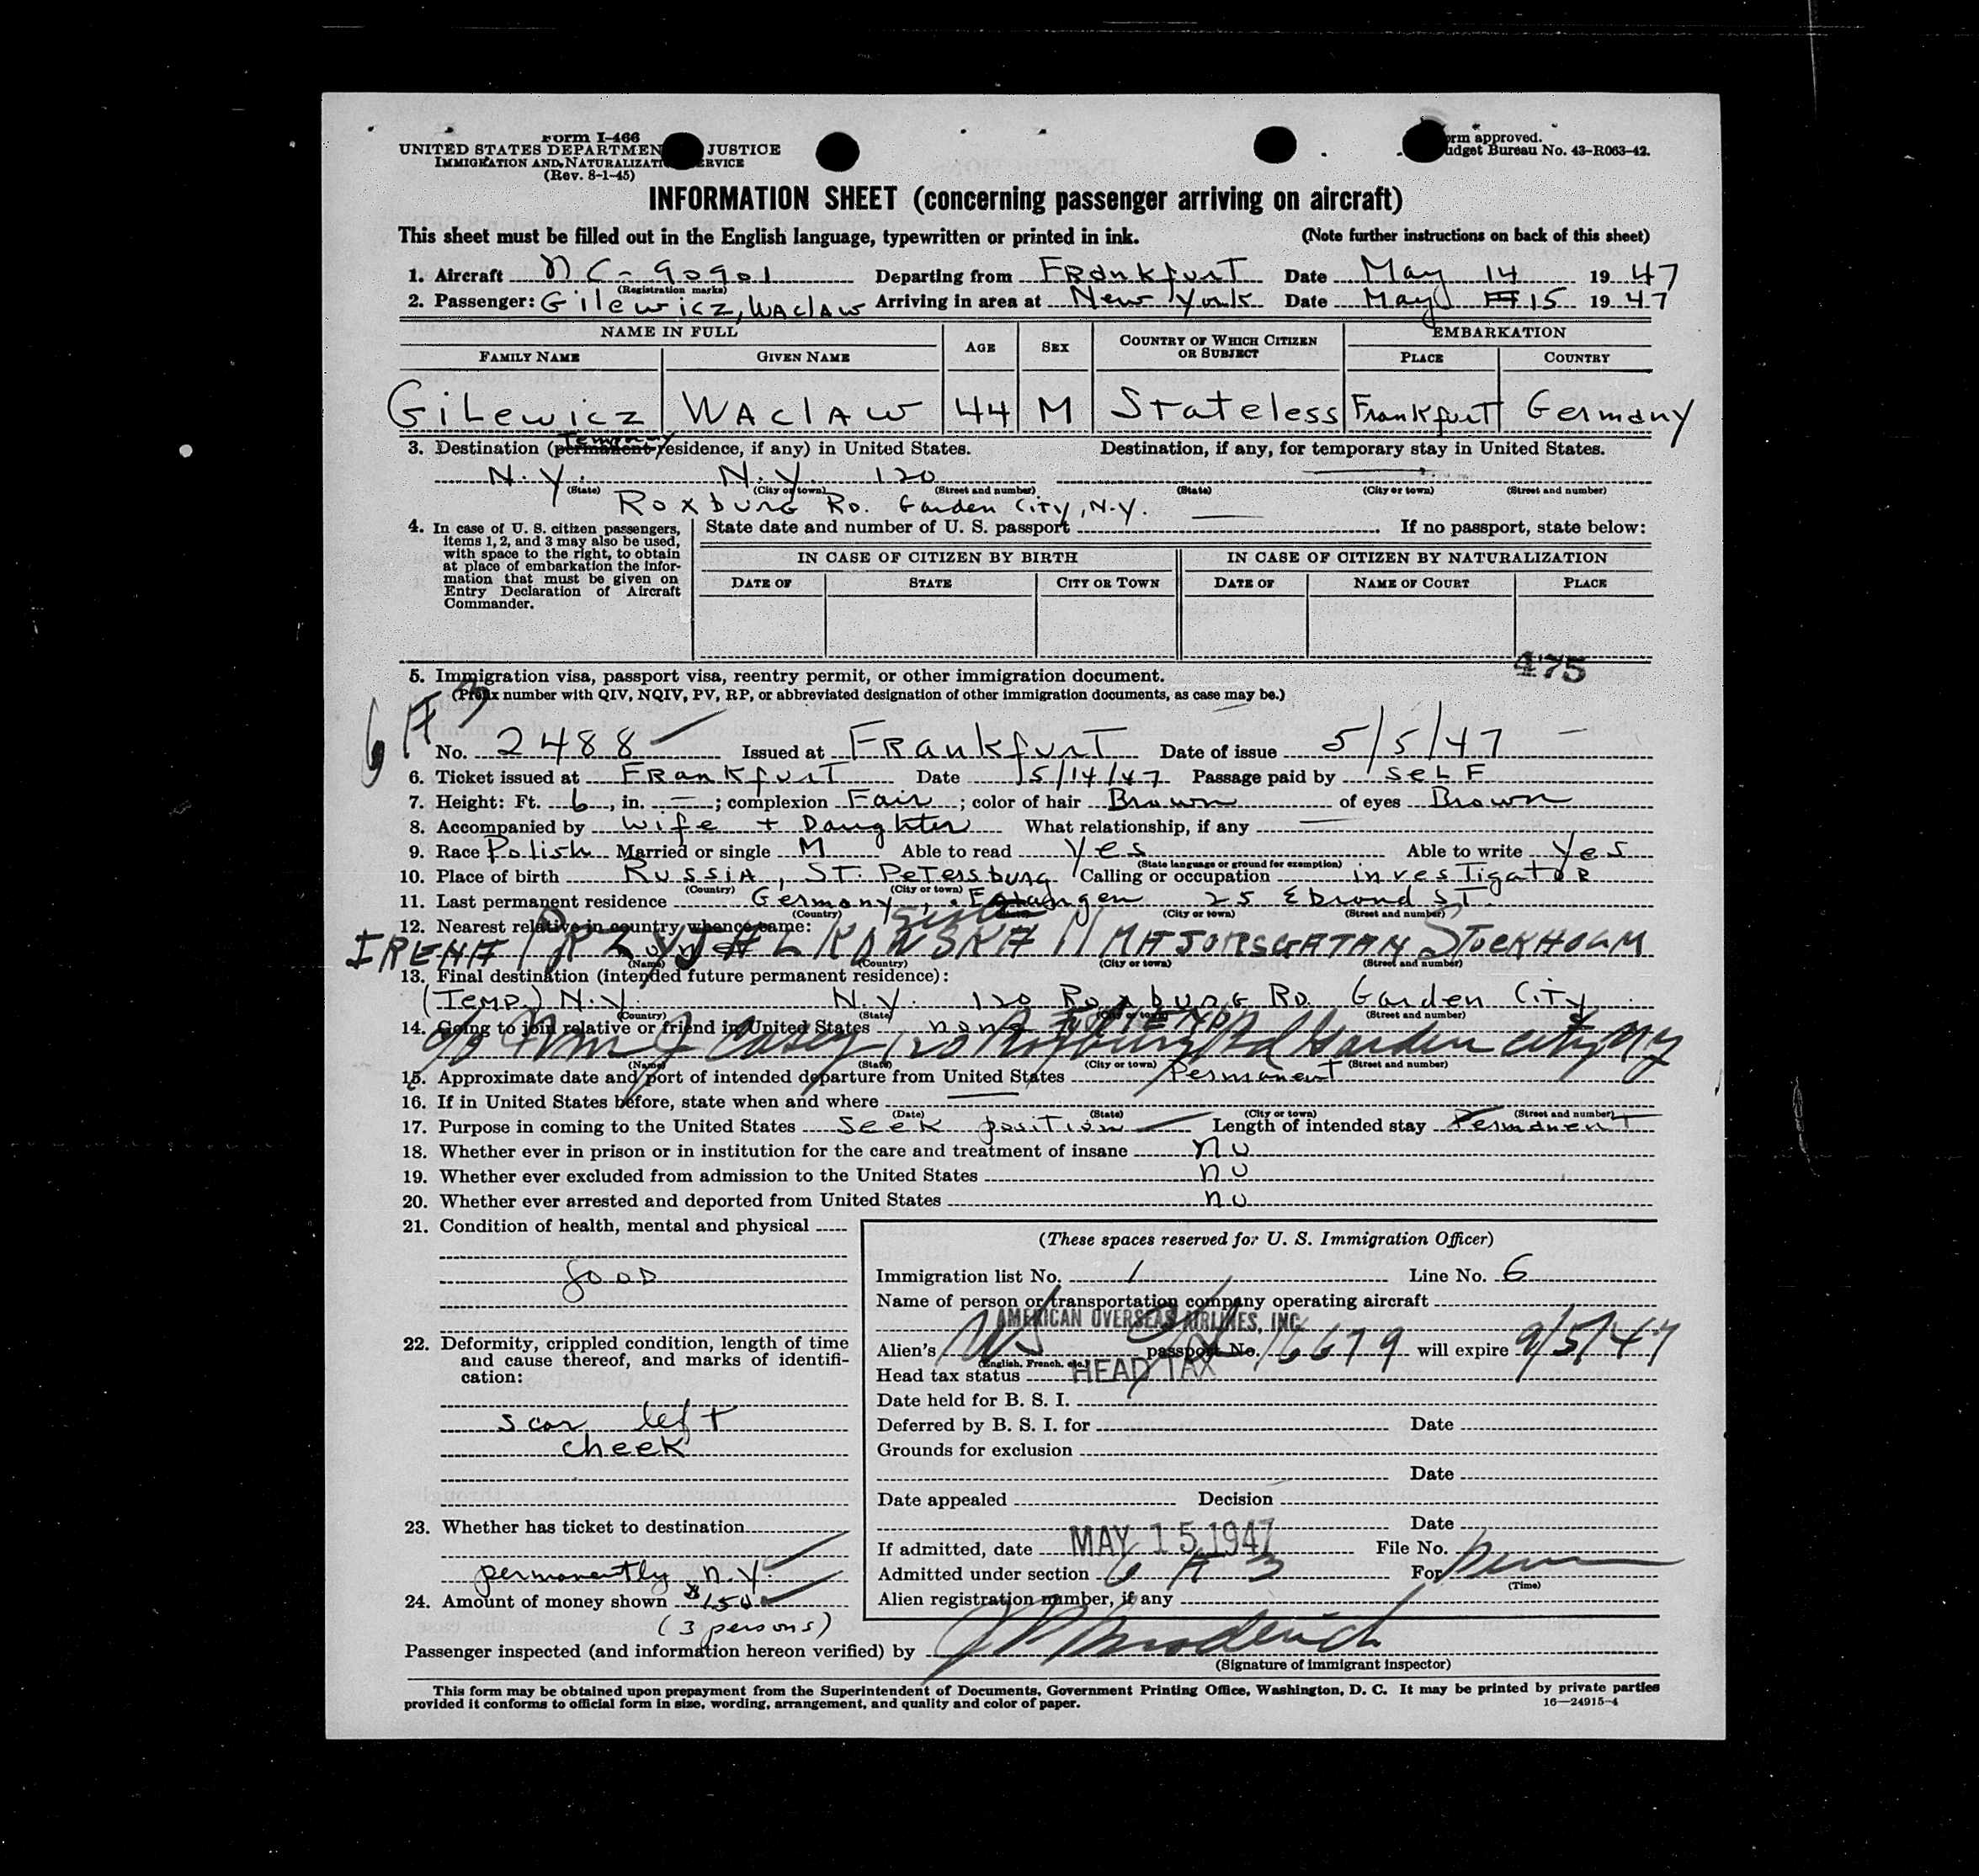 Form I-466
UNITED STATES DEPARTMEN JUSTICE
IMMIGRATION AND NATURALIZATI ERVICE
(Rev. 8-1-45)
orm approved.
udget Bureau No. 43-R063-42.
INFORMATION SHEET (concerning passenger arriving on aircraft)
This sheet must be filled out in the English language, typewritten or printed in ink. (Note further instructions on back of this sheet)
1. Aircraft NC-90901 Departing from Frankfurt Date May 14 1947
(Registration marks)
2. Passenger: Gilewicz, Waclaw Arriving in area at New York Date May 15 1947
NAME IN FULL AGE SEX COUNTRY OF WHICH CITIZEN OR SUBJECT EMBARKATION
FAMILY NAME GIVEN NAME PLACE COUNTRY
Gilewicz Waclaw 44 M Stateless Frankfurt Germany
3. Destination (permanent residence, if any) in United States. Destination, if any, for temporary stay in United States.
N.Y. N.Y. 120
(State) (City or town) (Street and number) (State) (City or town) (Street and number)
Roxburg Rd. Garden City, N.Y.
4. In case of U. S. citizen passengers, items 1, 2, and 3 may also be used, with space to the right, to obtain at place of embarkation the information that must be given on Entry Declaration of Aircraft Commander.
State date and number of U. S. passport If no passport, state below:
IN CASE OF CITIZEN BY BIRTH IN CASE OF CITIZEN BY NATURALIZATION
DATE OF STATE CITY OR TOWN DATE OF NAME OF COURT PLACE
475
5. Immigration visa, passport visa, reentry permit, or other immigration document.
(Prefix number with QIV, NQIV, PV, RP, or abbreviated designation of other immigration documents, as case may be.)
6 A 3
No. 2488 Issued at Frankfurt Date of issue 5/5/47
6. Ticket issued at Frankfurt Date 5/14/47 Passage paid by self
7. Height: Ft. 6, in. —; complexion Fair; color of hair Brown of eyes Brown
8. Accompanied by wife + Daughter What relationship, if any —
9. Race Polish Married or single M Able to read yes Able to write yes
(State language or ground for exemption)
10. Place of birth Russia, St. Petersburg Calling or occupation investigator
(Country) (City or town)
11. Last permanent residence Germany, 25 ST.
(Country) (State) (City or town) (Street and number)
12. Nearest relative in country whence came:
IRENA PRZYJALKOWSKA 11 MAJORSGATAN STOCKHOLM
(Name) (Country) (City or town) (Street and number)
13. Final destination (intended future permanent residence):
(Temp.) N.Y. N.Y. 120 Roxburg Rd. Garden City
(Country) (State) (City or town) (Street and number)
14. Going to join relative or friend in United States none FRIEND
c/o Wm J Casey 120 Roxburg Rd Garden City, NY
(Name) (State) (City or town) (Street and number)
15. Approximate date and port of intended departure from United States Permanent
16. If in United States before, state when and where —
(Date) (State) (City or town) (Street and number)
17. Purpose in coming to the United States seek position Length of intended stay Permanent
18. Whether ever in prison or in institution for the care and treatment of insane no
19. Whether ever excluded from admission to the United States no
20. Whether ever arrested and deported from United States no
21. Condition of health, mental and physical
good
22. Deformity, crippled condition, length of time and cause thereof, and marks of identification:
scar left
cheek
23. Whether has ticket to destination
permanently N.Y.
24. Amount of money shown $150
(3 persons)
(These spaces reserved for U. S. Immigration Officer)
Immigration list No. 1 Line No. 6
Name of person or transportation company operating aircraft
AMERICAN OVERSEAS AIRLINES, INC.
Alien's passport No. 16679 will expire 9/5/47
(English, French, etc.)
Head tax status HEAD TAX
Date held for B. S. I.
Deferred by B. S. I. for Date
Grounds for exclusion
Date
Date appealed Decision
Date
If admitted, date MAY 15 1947 File No.
Admitted under section 6 A 3 For Perm
(Time)
Alien registration number, if any
Passenger inspected (and information hereon verified) by
(Signature of immigrant inspector)
This form may be obtained upon prepayment from the Superintendent of Documents, Government Printing Office, Washington, D. C. It may be printed by private parties
provided it conforms to official form in size, wording, arrangement, and quality and color of paper.
16—24915-4